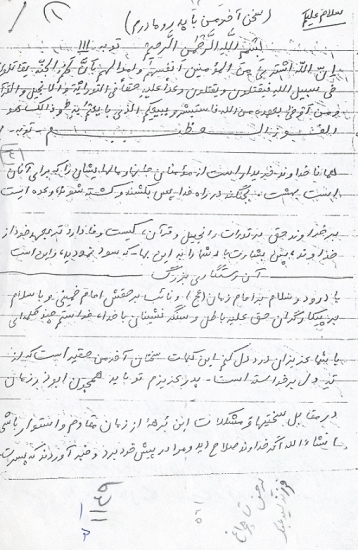 سلام علیکم
(سخن آخر من با پدر و مادرم)
بسم الله الرحمن الرحیم توبه ۱۱۱
ان الله اشتری من المؤمنین انفسهم و اموالهم بان لهم الجنة یقاتلون
فی سبیل الله فیقتلون و یقتلون وعدا علیه حقا فی التوراة و الانجیل و القرآن
و من اوفی بعهده من الله فاستبشروا ببیعکم الذی بایعتم به و ذالک هو
الفوز العظیم
همانا خداوند خریدار است از مؤمنان جانها و مالهایشان را که برای آنان
است بهشت. بجنگند در راه خدا پس بکشند و کشته شوند وعده است
بر خداوند حق در تورات و انجیل و قرآن، کیست وفادارتر به عهد خود از
خداوند، پس بشارت باد شما را به این که سودا نمودید، و این است
آن رستگاری بزرگ
با درود و سلام بر امام زمان (عج) و نائب بر حقش امام خمینی و با سلام
بر پیکارگران حق علیه باطل و سنگر نشینان با خدا، خواستم چند کلمه‌ای
با شما عزیزان درد دل کنم این کلمات سخنان آخر من حقیر است که از
ته دل برخواسته است. پدر عزیزم تو باید همچون ابوذر زمان
در مقابل سختیها و مشکلات این برهه از زمان مقاوم و استوار باشی
انشاء الله اگر خداوند صلاح دید و مرا در پیش خود برد و خبر آوردند که پسرت